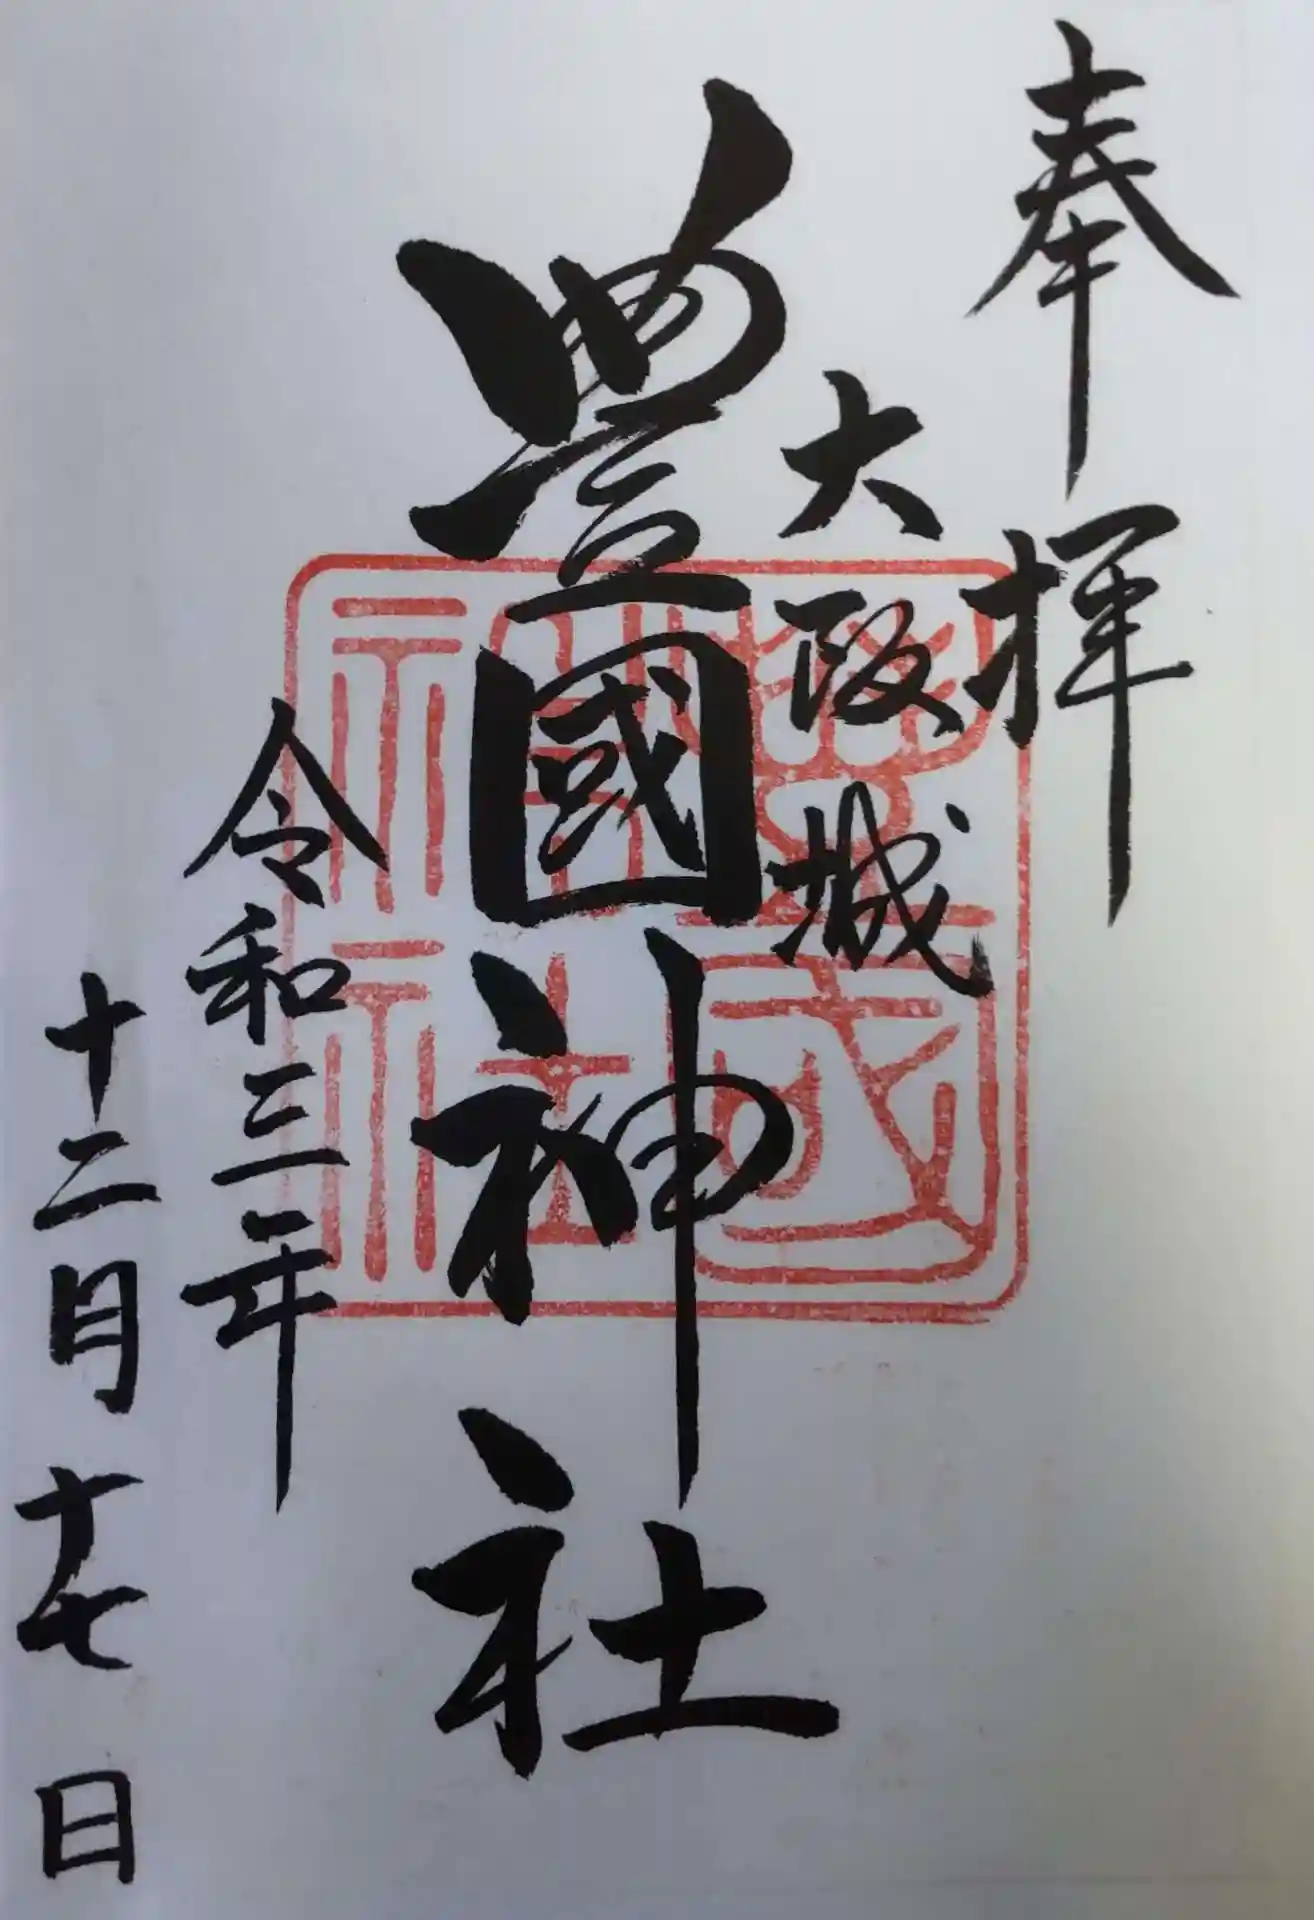 奉拝
大阪城
豐國神社
令和三年
十二月十七日
豊國
神社